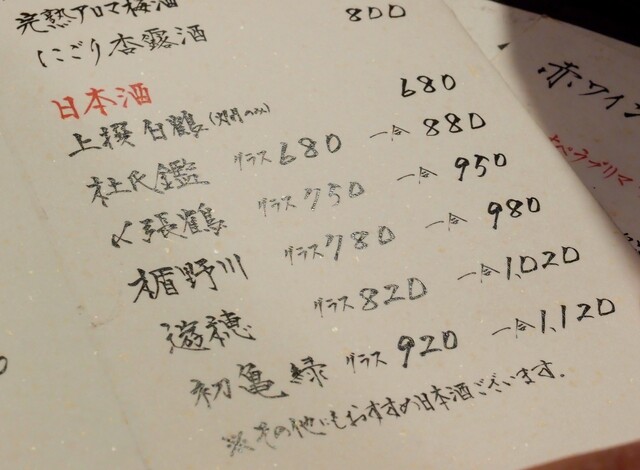 完熟アロマ梅酒
にごり杏露酒 800
日本酒
上撰白鶴(燗のみ) 680
杜氏鑑 グラス680 一合880
〆張鶴 グラス750 一合950
楯野川 グラス780 一合980
遊穂 グラス820 一合1,020
初亀 緑 グラス920 一合1,120
※その他にもおすすめ日本酒ございます.
赤ワイン